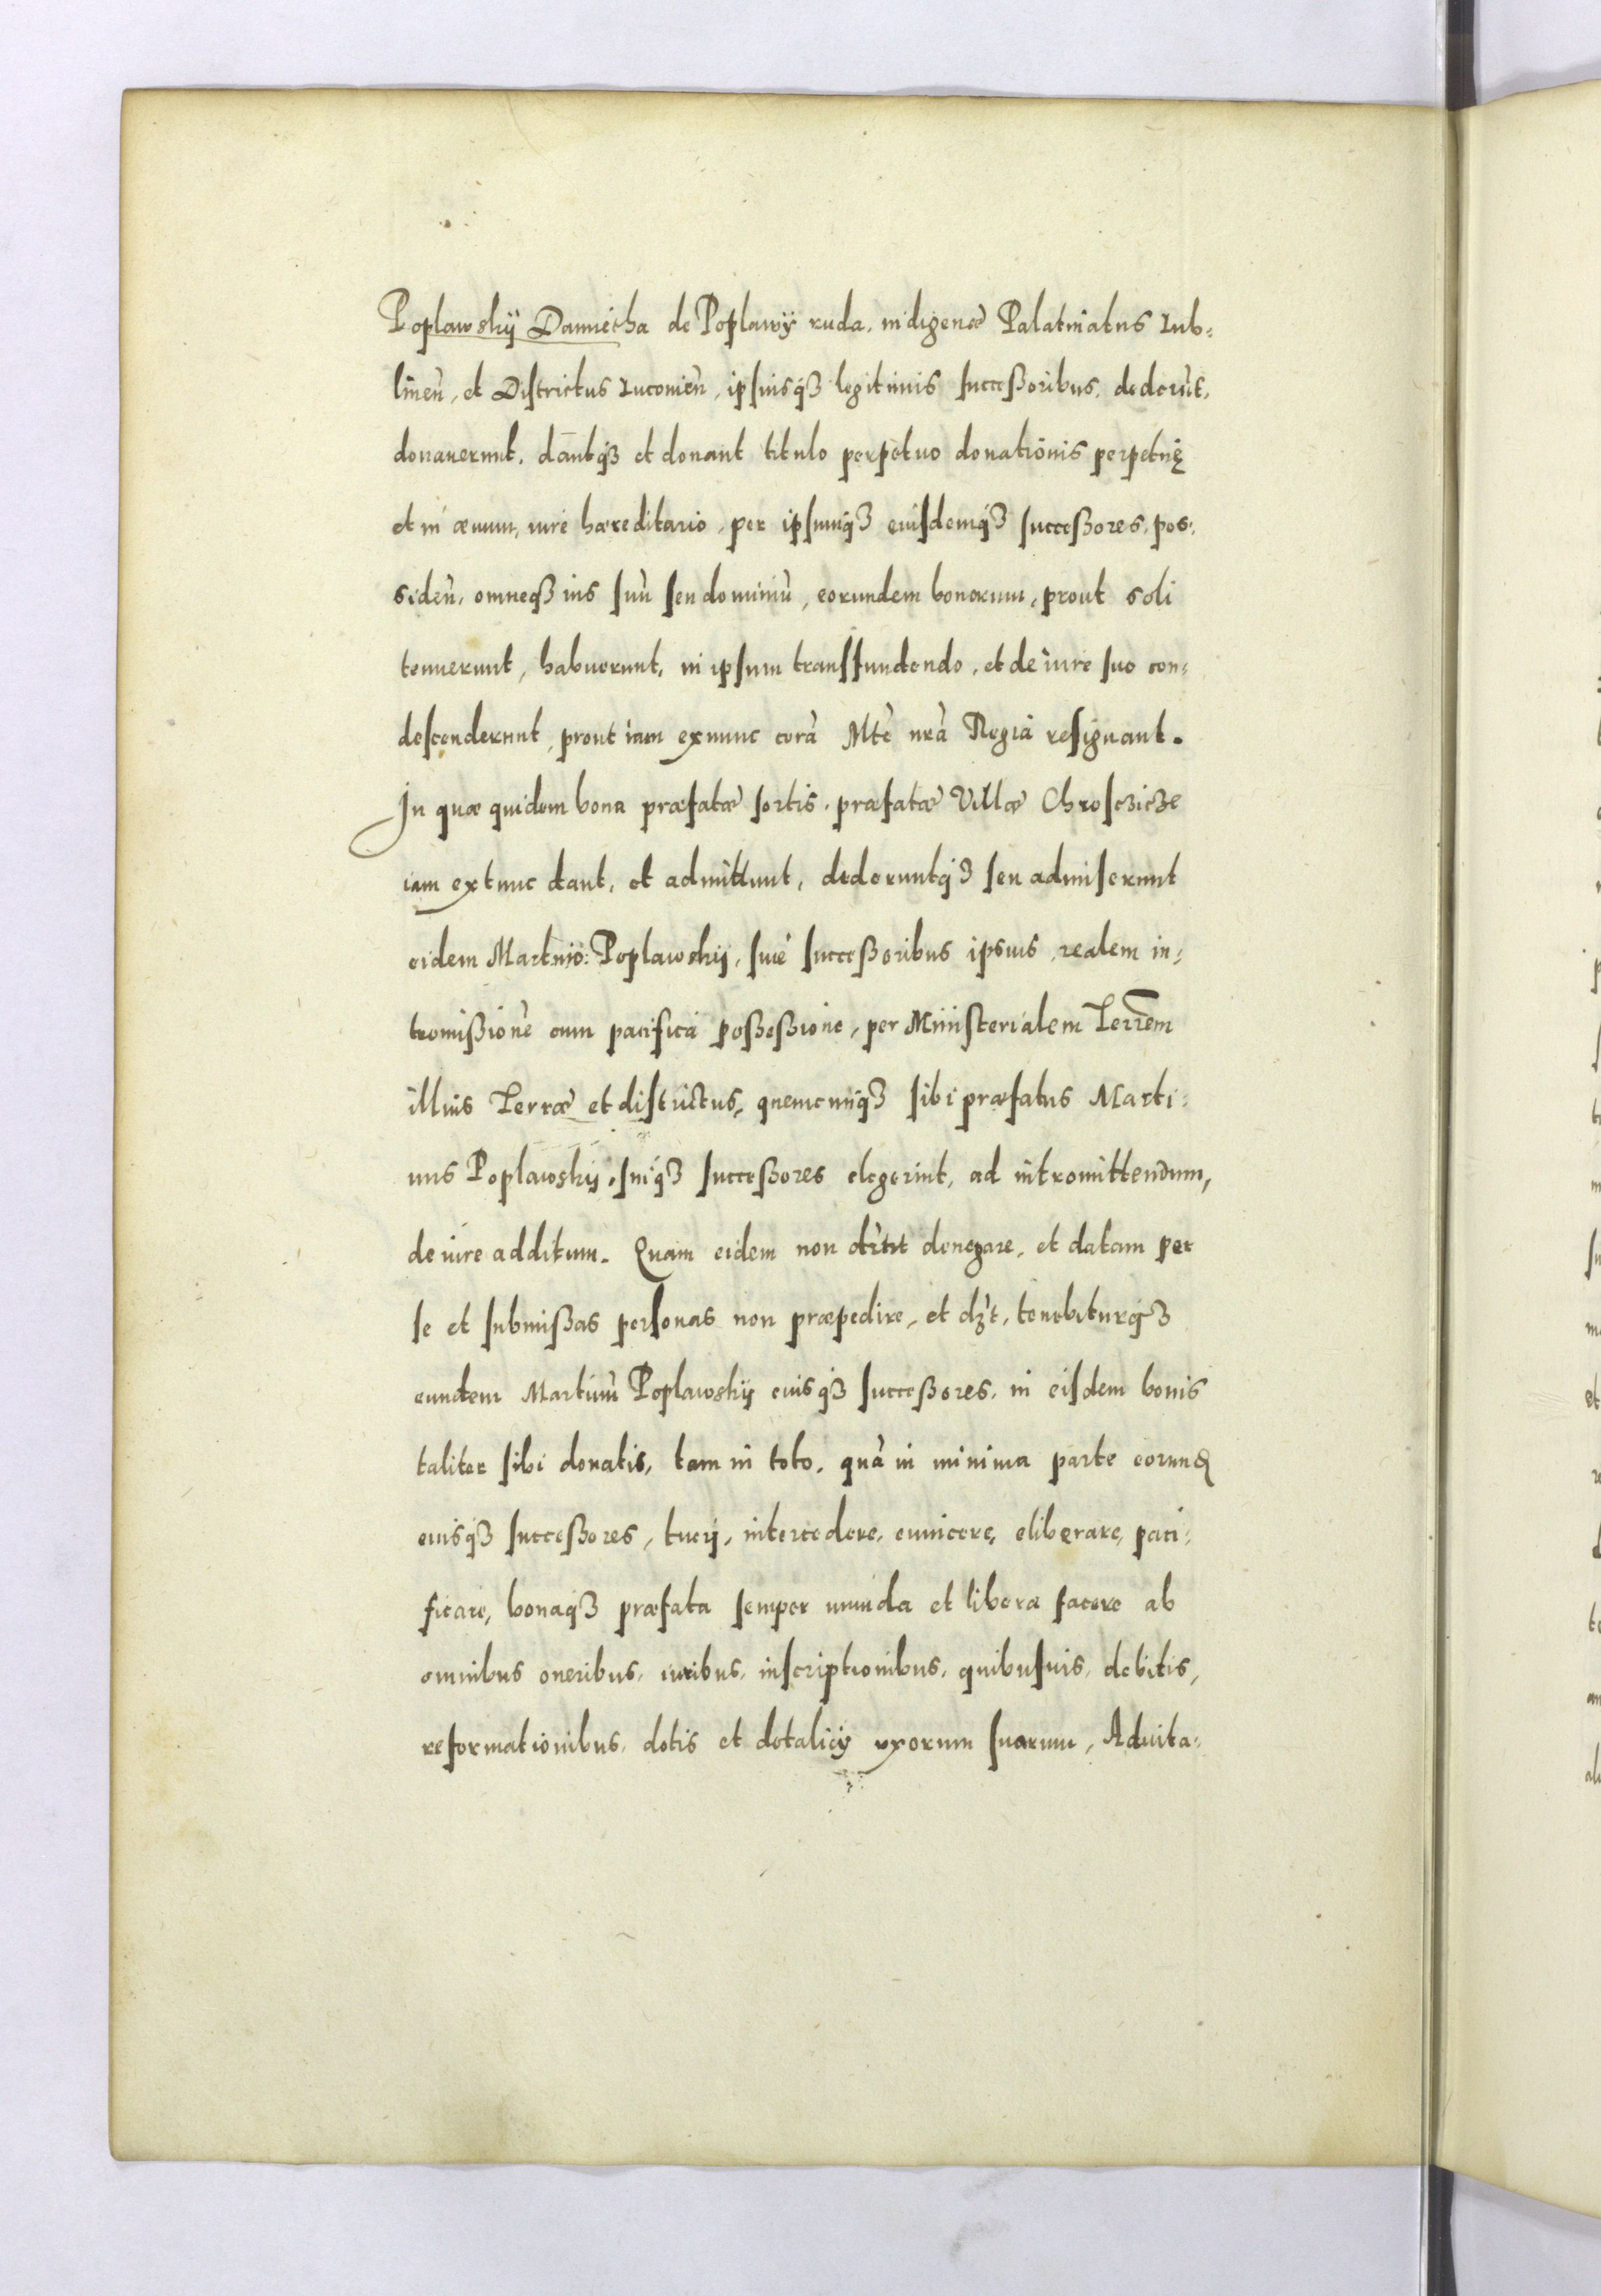 Poplawskÿ Damiecha de Poplawÿ ruda, indigenæ Palatinatus Lub-
lineñ, et Districtus Luconieñ, ipsiusqȝ legitimis successoribus, dederũt,
donauerunt, dantqȝ et donant titulo perpetuo donationis perpetuę
et in æuum, iure hæreditario, per ipsumqȝ eiusdemqȝ successores, pos-
sideñ, omneqȝ ius suũ seu dominiũ, eorundem bonorum, prout soli
tenuerunt, habuerunt, in ipsum transfundendo, et de iure suo con-
descenderunt, prout iam exnunc corã Mte nrã Regia resignant.
In quæ quidem bona præfatæ sortis, præfatæ Villæ Chrosczicze
iam extunc dant, et admittunt, dederuntqȝ seu admiserunt
eidem Martino: Poplawskÿ, siue successoribus ipsius, realem in-
tromissionẽ cum pacifica possessione, per Ministerialem Terrẽm
illius Terræ et districtus, quemcunqȝ sibi præfatus Marti-
nus Poplawskÿ, suiqȝ successores elegerint, ad intromittendum,
de iure additum. Quam eidem non debũt denegare, et datam per
se et submissas personas non præpedire, et dȝt, tenebiturqȝ
eundem Martinũ Poplawskÿ eiusqȝ successores, in eisdem bonis
taliter sibi donatis, tam in toto, quã in minima parte eorund
eiusqȝ successores, tuerÿ, intercedere, euincere, eliberare, paci-
ficare, bonaqȝ præfata semper munda et libera facere ab
omnibus oneribus, iuribus, inscriptionibus, quibusuis, debitis,
reformationibus, dotis et dotalicÿ uxorum suarum, Aduita-